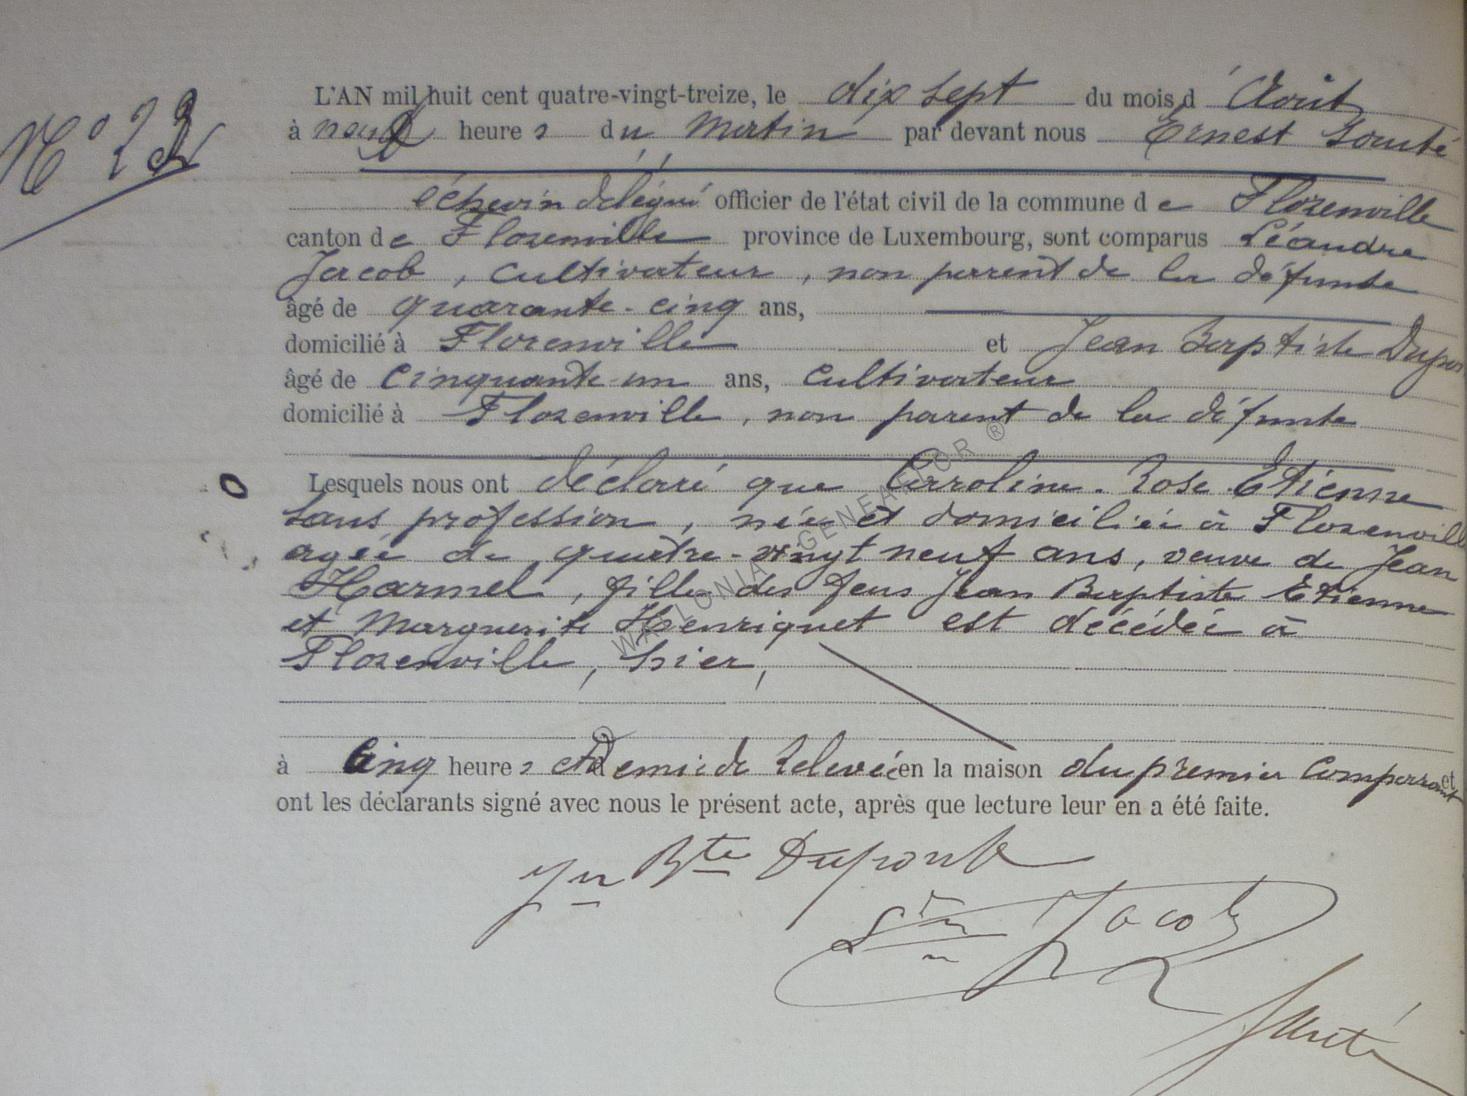 N° 23
L'AN mil huit cent quatre-vingt-treize, le dix sept du mois d'Août
à neuf heures du matin par devant nous Ernest
échevin délégué officier de l'état civil de la commune de Florenville
canton de Florenville province de Luxembourg, sont comparus Léandre
Jacob, cultivateur, non parent de la défunte
âgé de quarante-cinq ans,
domicilié à Florenville et Jean Baptiste Dupon
âgé de cinquante-un ans, cultivateur
domicilié à Florenville, non parent de la défunte
Lesquels nous ont déclaré que Carroline-Rose Etienne
sans profession, née et domiciliée à Florenville
agée de quatre-vingt neuf ans, veuve de Jean
Harmel, fille des feus Jean Baptiste Etienne
et Marguerite Henriquet est décédée à
Florenville, hier,
à Cinq heures et Demie de Relevée en la maison du premier comparant et
ont les déclarants signé avec nous le présent acte, après que lecture leur en a été faite.
Jn Bte Dupont
Jacob
WALLONIA GENEAFOR ®